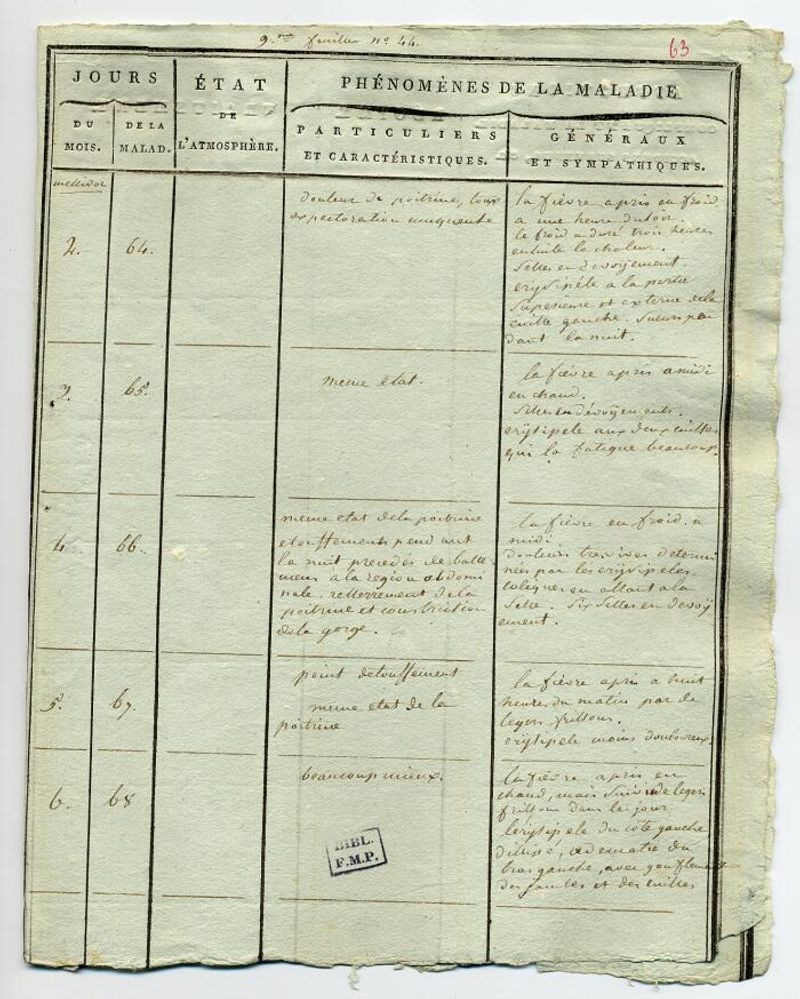 9.me feuillet no 44.
63
JOURS
ÉTAT
PHÉNOMÈNES DE LA MALADIE
DU
MOIS.
DE LA
MALAD.
DE
L'ATMOSPHÈRE.
PARTICULIERS
ET CARACTÉRISTIQUES.
GÉNÉRAUX
ET SYMPATHIQUES.
messidor
2.
64.
douleur de poitrine, toux
expectoration muqueuse
la fièvre a pris en froid
a une heure du soir.
le froid a duré trois heures
ensuite la chaleur.
Selles en dévoyement.
erysipéle a la partie
Superieure et externe de la
cuisse gauche. Sueurs pen
dant la nuit.
3.
65.
meme etat.
la fièvre apres a midi
en chaud.
Selles en dévoyements.
erysipele aux deux cuisses
qui la fatigue beaucoup.
4.
66.
meme etat de la poitrine
etouffements pend ant
la nuit precedés de batte
mens a la region abdomi
nale. resserrement de la
poitrine et constriction
de la gorge.
la fièvre en froid. a
midi
douleurs tres vives determi
nées par les erysipeles
en allant a la
Selle. Six Selles en devoy
ement.
5.
67.
point detouffement
meme etat de la
poitrine
la fièvre a pris a huit
heures du matin par de
legers frissons.
erysipele moins douloureux.
6.
68
beaucoup mieux.
la fièvre a pris en
chaud, mais Suivi de legers
frissons dans le jour.
lerysipele du coté gauche
dissipé, oedematie du
bras gauche, avec gonflement
des jambes et des cuisses
BIBL.
F.M.P.